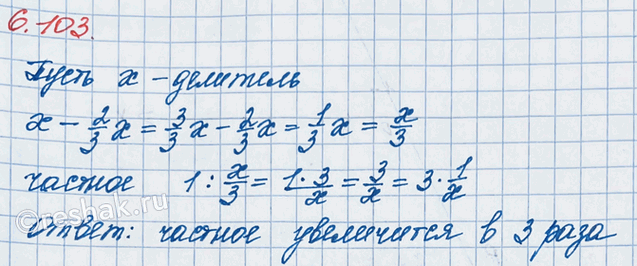 6.103.
Пусть x - делитель
x - 2/3 x = 3/3 x - 2/3 x = 1/3 x = x/3
частное 1 : x/3 = 1·3/x = 3/x = 3 · 1/x
Ответ: частное увеличится в 3 раза
©reshak.ru